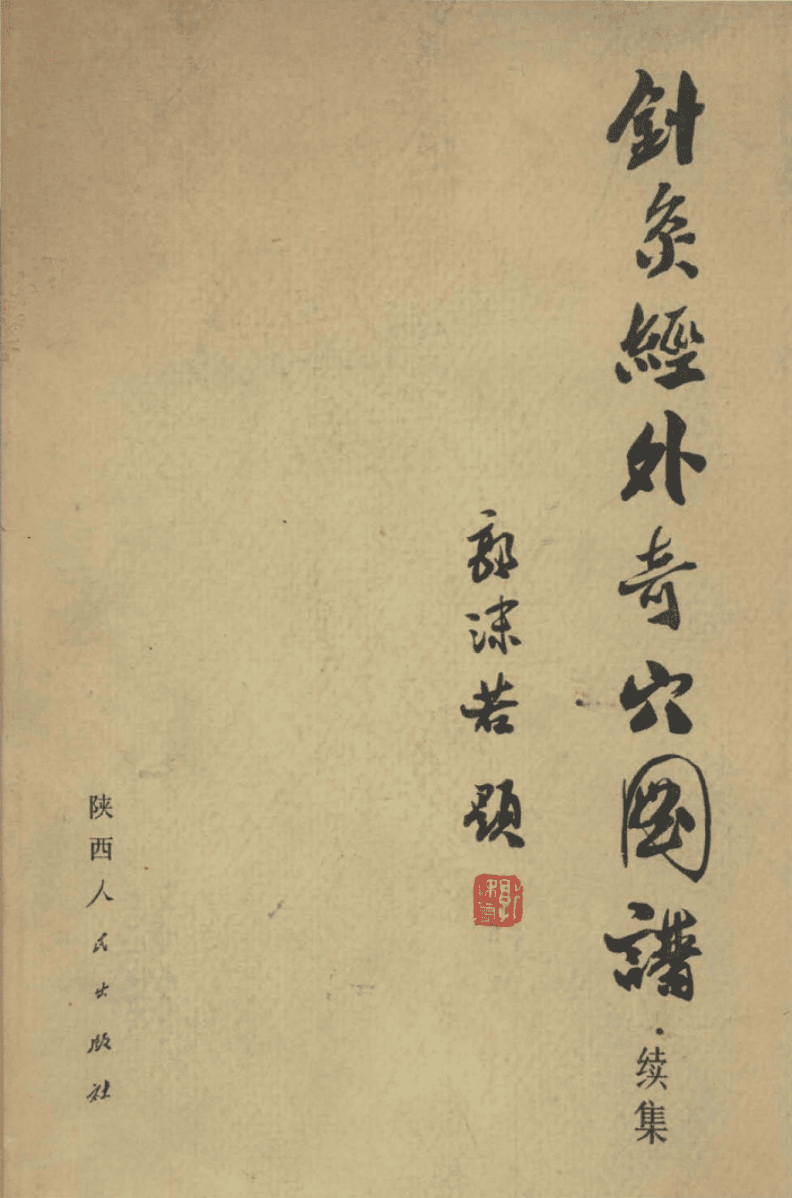 針灸經外奇穴圖譜·续集
郭沫若題
陕西人民出版社